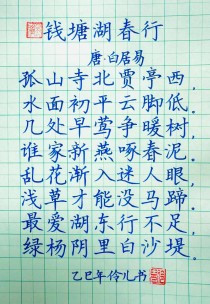 钱塘湖春行
唐·白居易
孤山寺北贾亭西，
水面初平云脚低。
几处早莺争暖树，
谁家新燕啄春泥。
乱花渐入迷人眼，
浅草才能没马蹄。
最爱湖东行不足，
绿杨阴里白沙堤。
乙巳年伶儿书